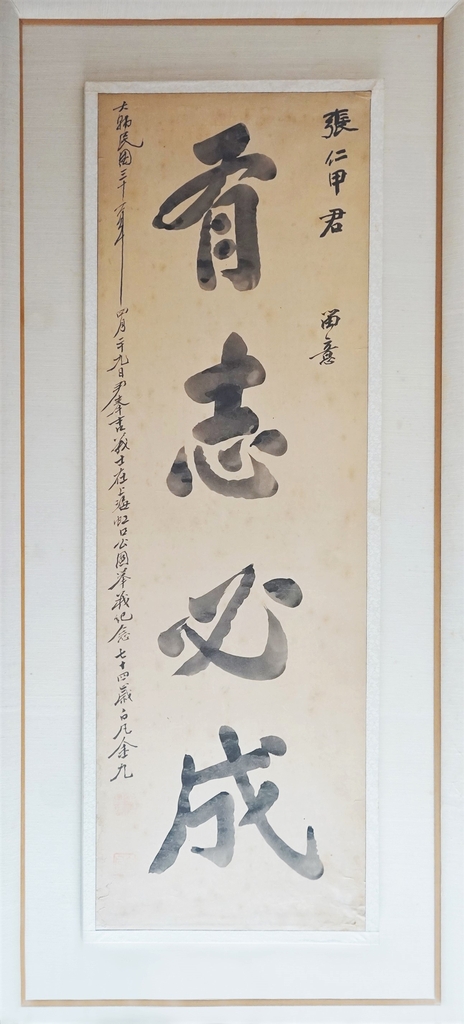 張仁甲君 留意
有志必成
大韓民國三十一年四月二十九日尹奉吉義士在上海虹口公園举義紀念 七十四歲白凡金九